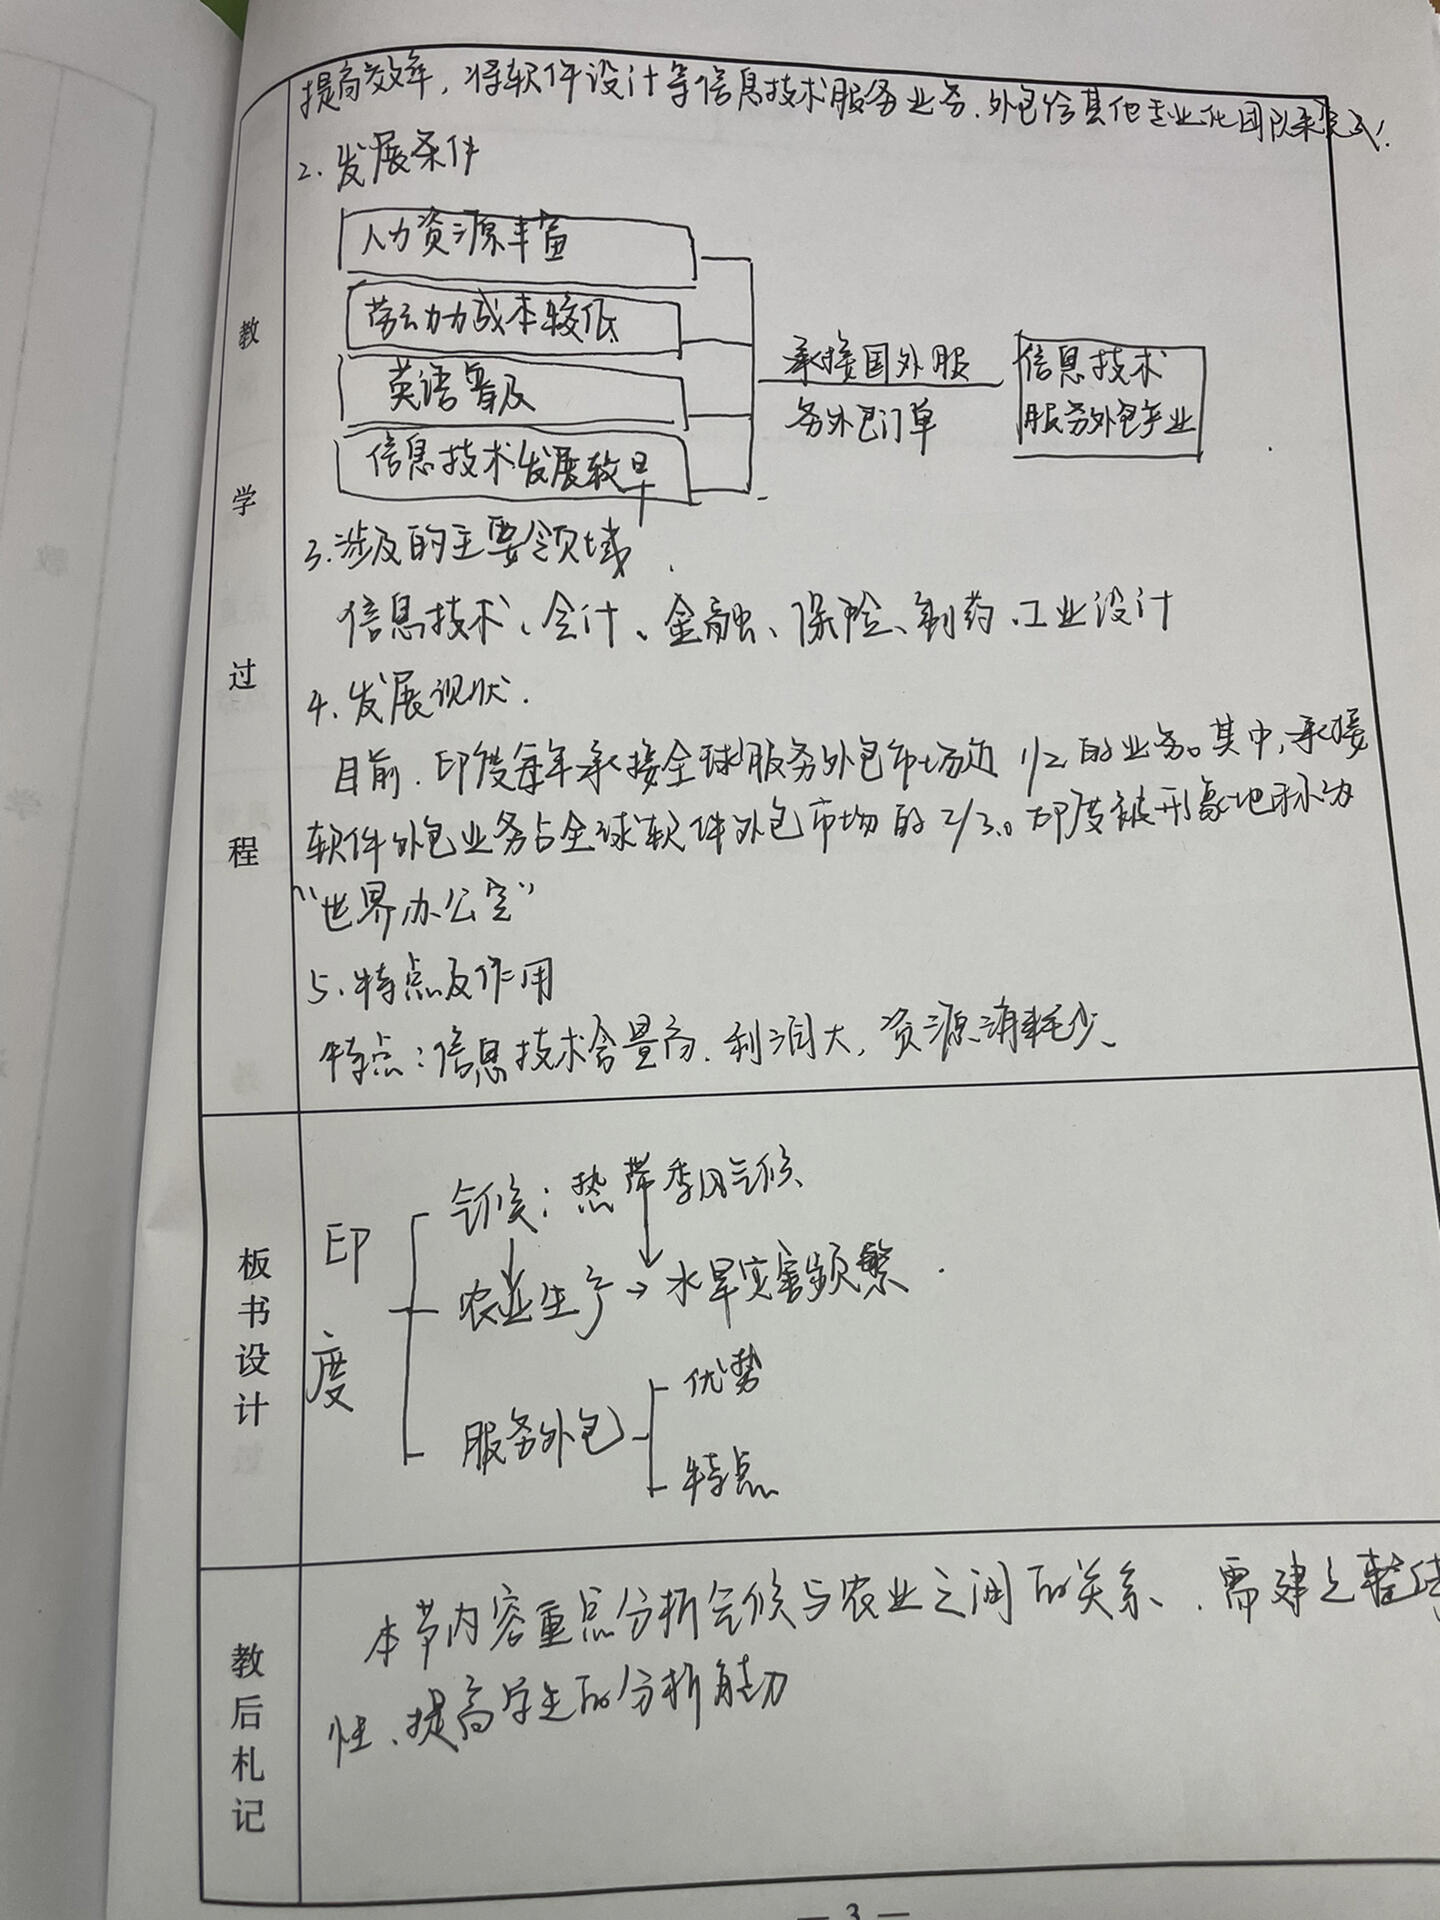 提高效率,将软件设计等信息技术服务业务,外包给其他专业化团队来完成.
2.发展条件
人力资源丰富
劳动力成本较低
英语普及
信息技术发展较早
承接国外服
务外包订单
信息技术
服务外包产业
3.涉及的主要领域
信息技术、会计、金融、保险、制药、工业设计
4.发展现状.
目前.印度每年承接全球服务外包市场近1/2的业务。其中,承接
软件外包业务占全球软件外包市场的2/3。印度被形象地称为
“世界办公室”
5.特点及作用
特点:信息技术含量高.利润大,资源消耗少、
教学过程
气候:热带季风气候、
印度
农业生产→水旱灾害频繁.
优势
服务外包
特点
板书设计
本节内容重点分析气候与农业之间的关系、.需建立整体
性、提高学生的分析能力
教后札记
— 3 —